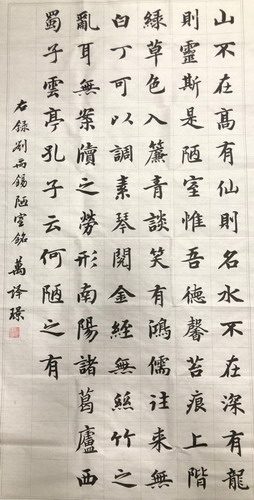 山不在高有仙則名水不在深有龍
則靈斯是陋室惟吾德馨苔痕上階
綠草色入簾青談笑有鴻儒往來無
白丁可以調素琴閱金經無絲竹之
亂耳無案牘之勞形南陽諸葛廬西
蜀子雲亭孔子云何陋之有
右錄劉禹錫陋室銘 萬譯璟